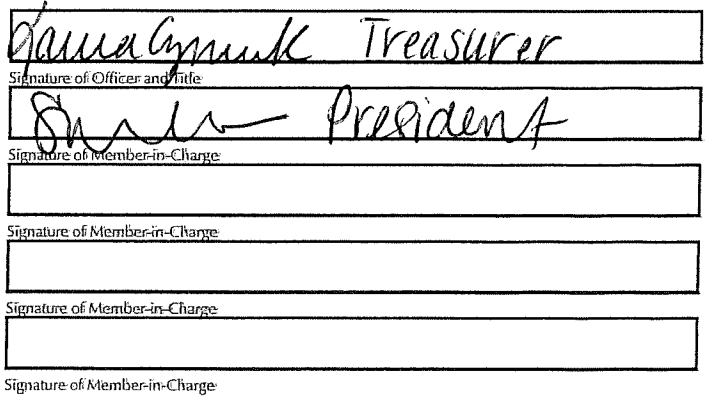 Treasurer
Signature of Officer and Title
President
Signature of Member-in-Charge
Signature of Member-in-Charge
Signature of Member-in-Charge
Signature of Member-in-Charge